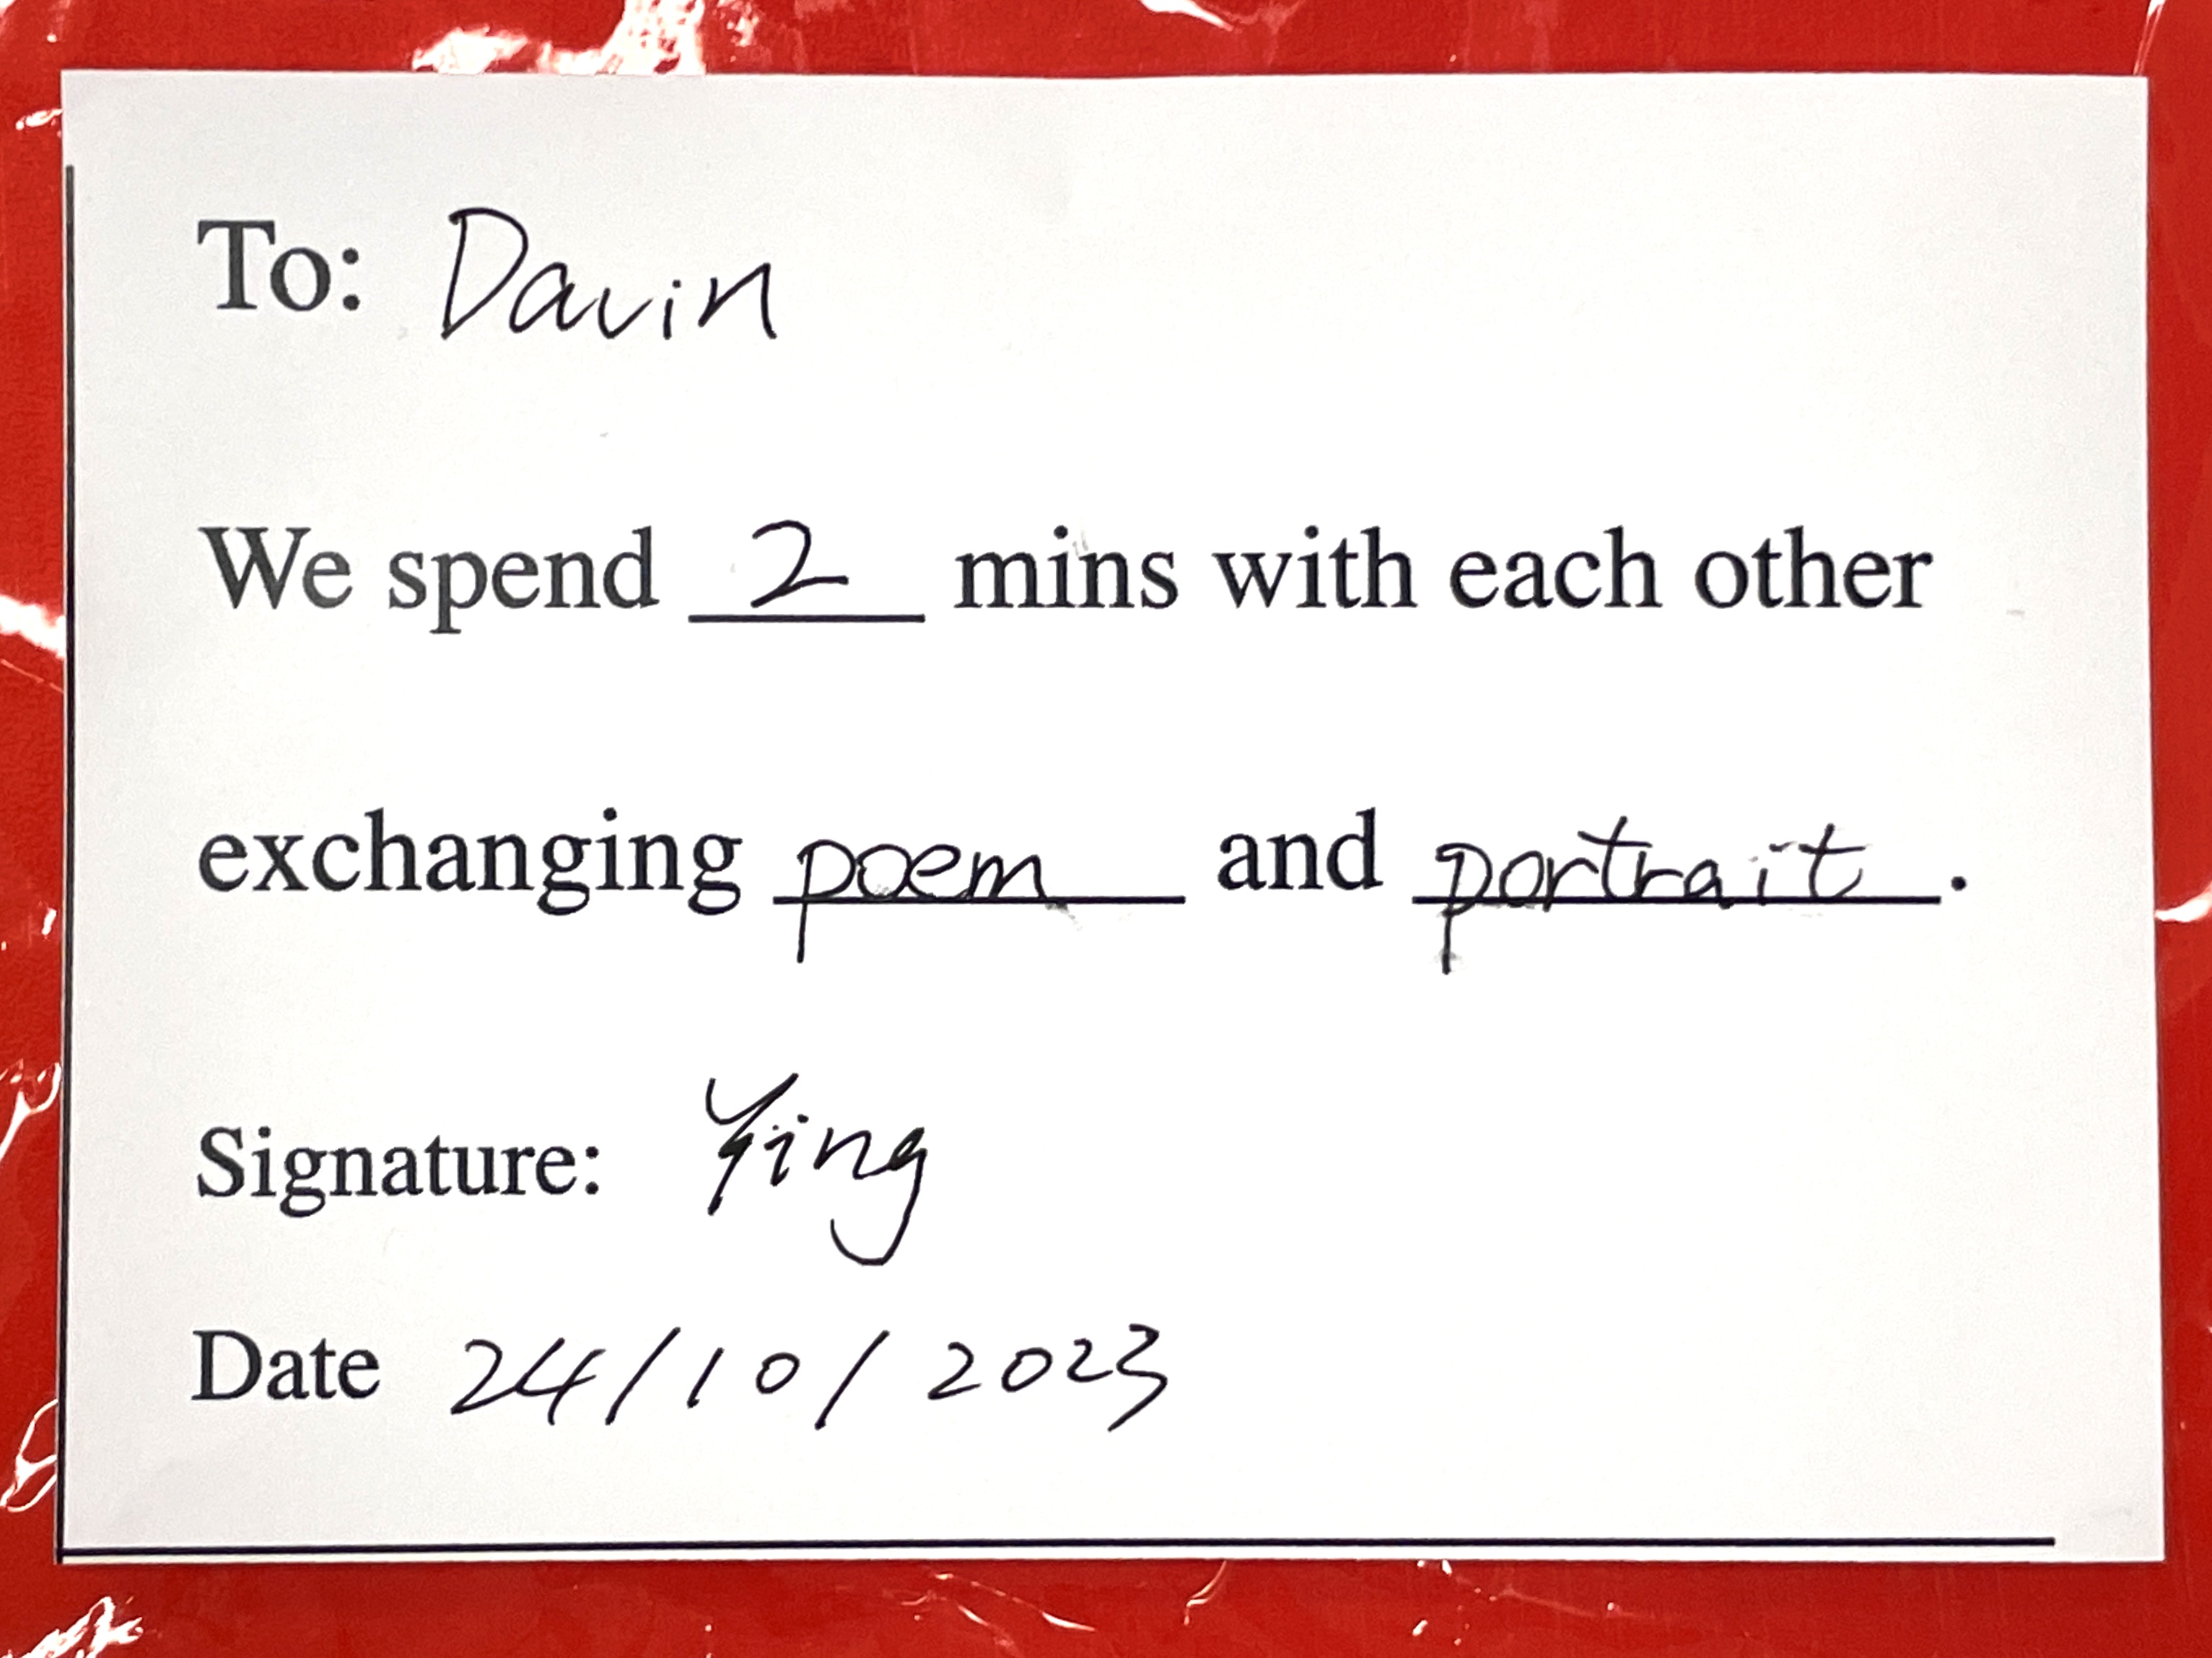 To: Davin
We spend 2 mins with each other
exchanging poem and portrait.
Signature: Ying
Date 24/10/2023